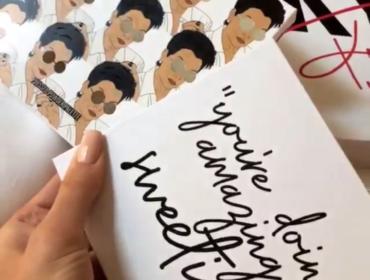 "you're doin
amazing
sweeti